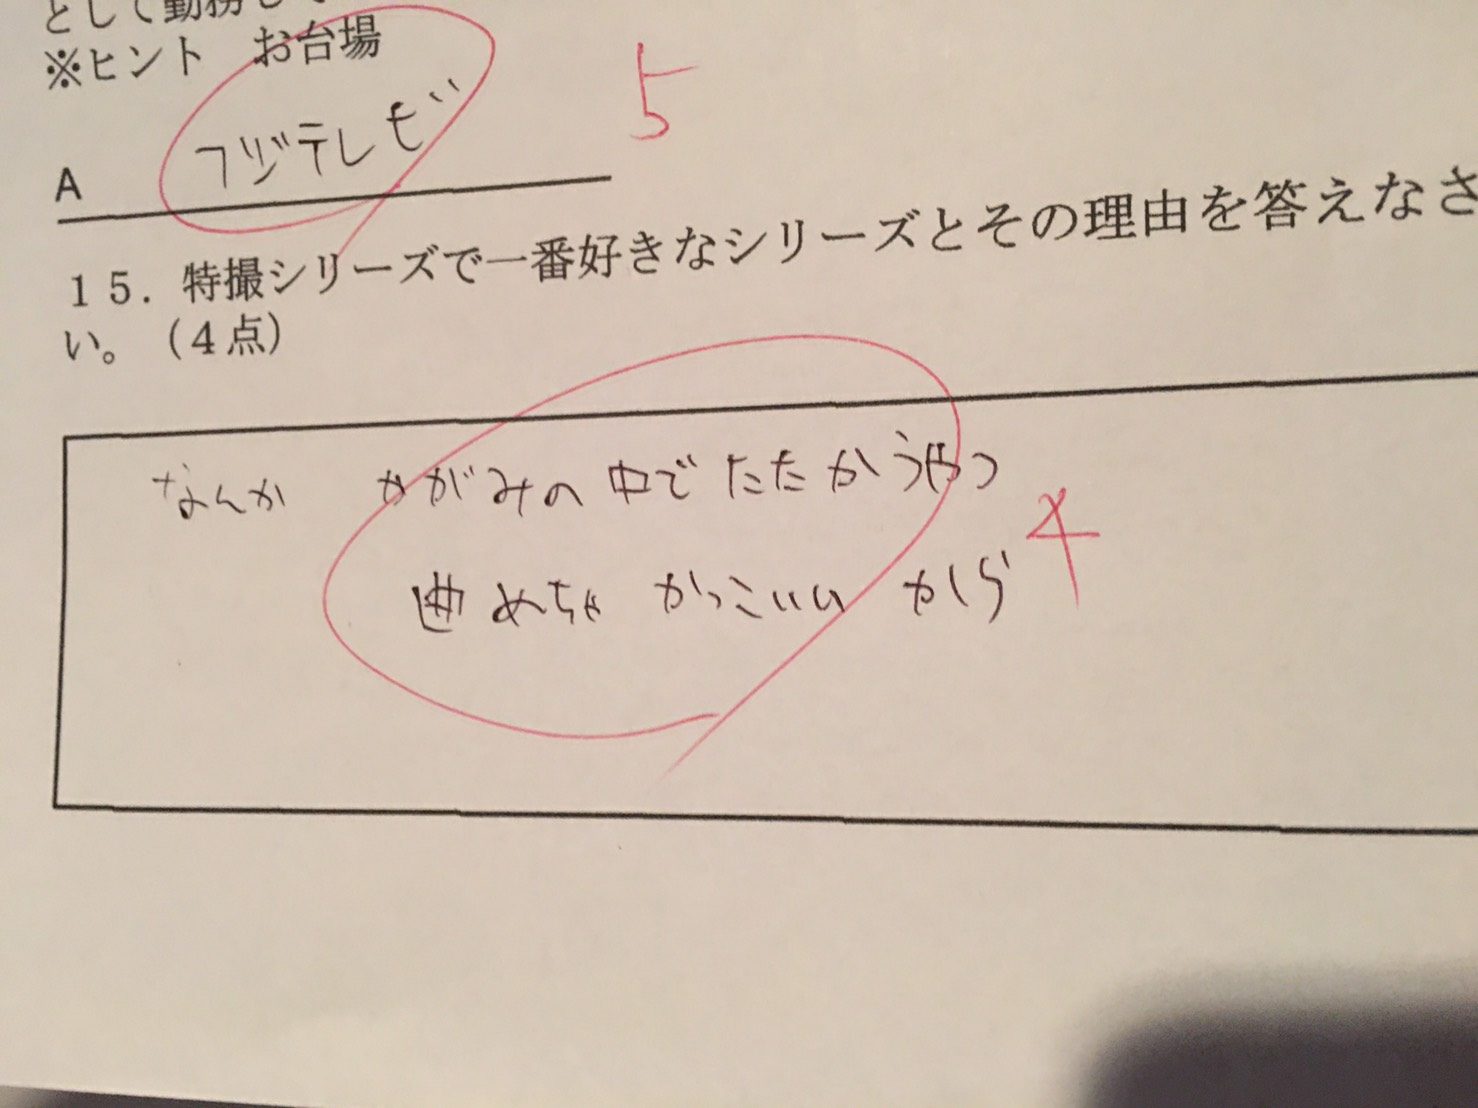 として勤務して
※ヒント　お台場
A フジテレビ
5
１５．特撮シリーズで一番好きなシリーズとその理由を答えなさ
い。（４点）
なんか かがみの中でたたかうやつ
4
理由 めちゃ かっこいい から